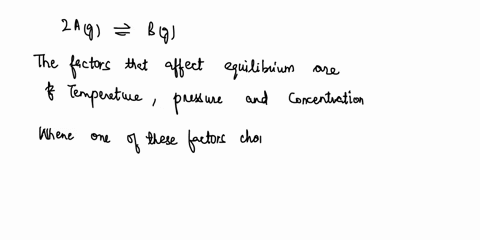 2A(g) ⇌ B(g)
The factors that affect equilibrium are
Temperature, pressure and Concentration
Where one of these factors